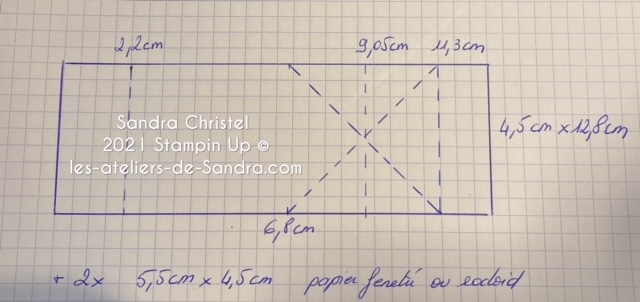 2,2cm 9,05cm 11,3cm
Sandra Christel
2021 Stampin Up ©
les-ateliers-de-Sandra.com
4,5cm x 12,8cm
6,8cm
+ 2x 5,5cm x 4,5cm papier fenêtre ou rodoid